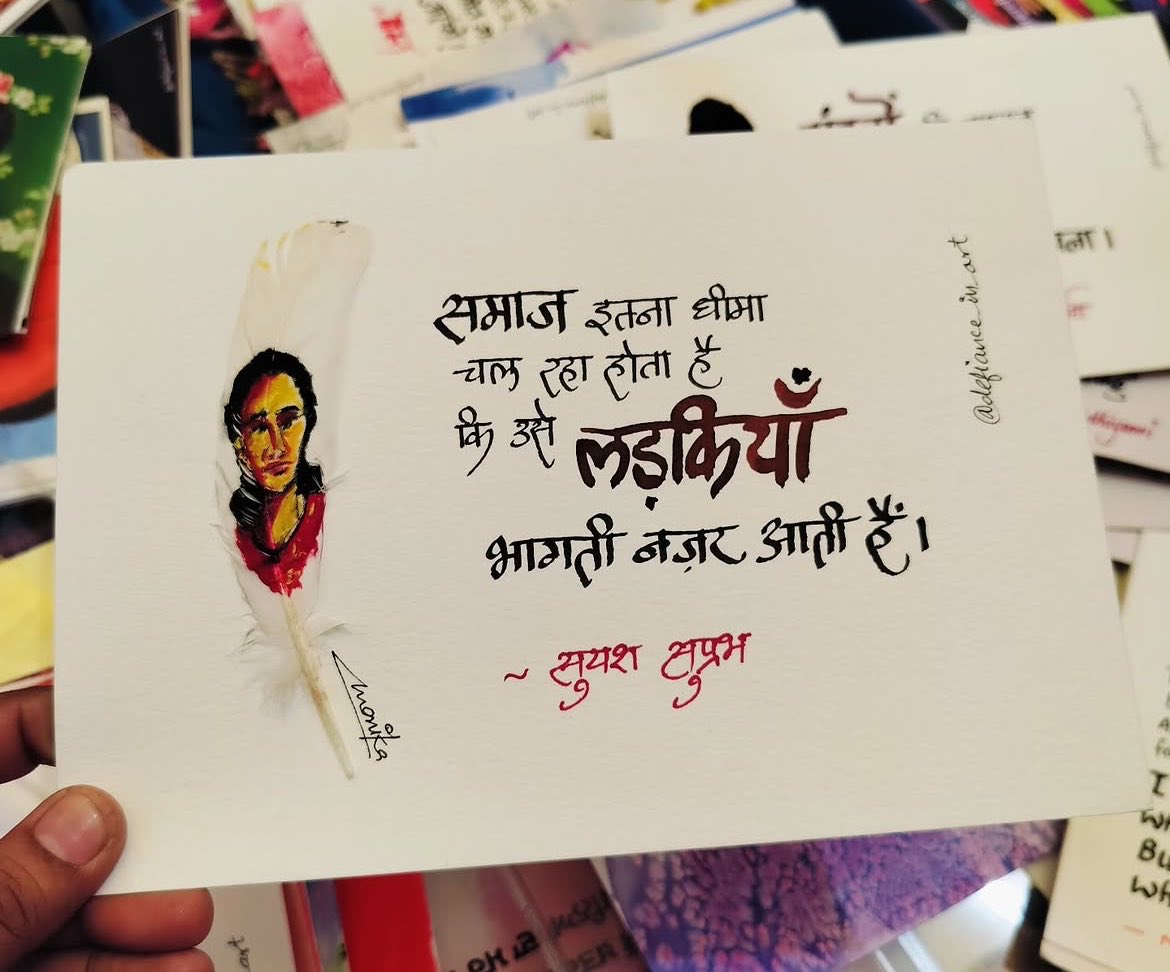 समाज इतना धीमा
चल रहा होता है
कि उसे लड़कियाँ
भागती नज़र आती हैं।
~ सुयश सुप्रभ
Monika
@defiance_in_art